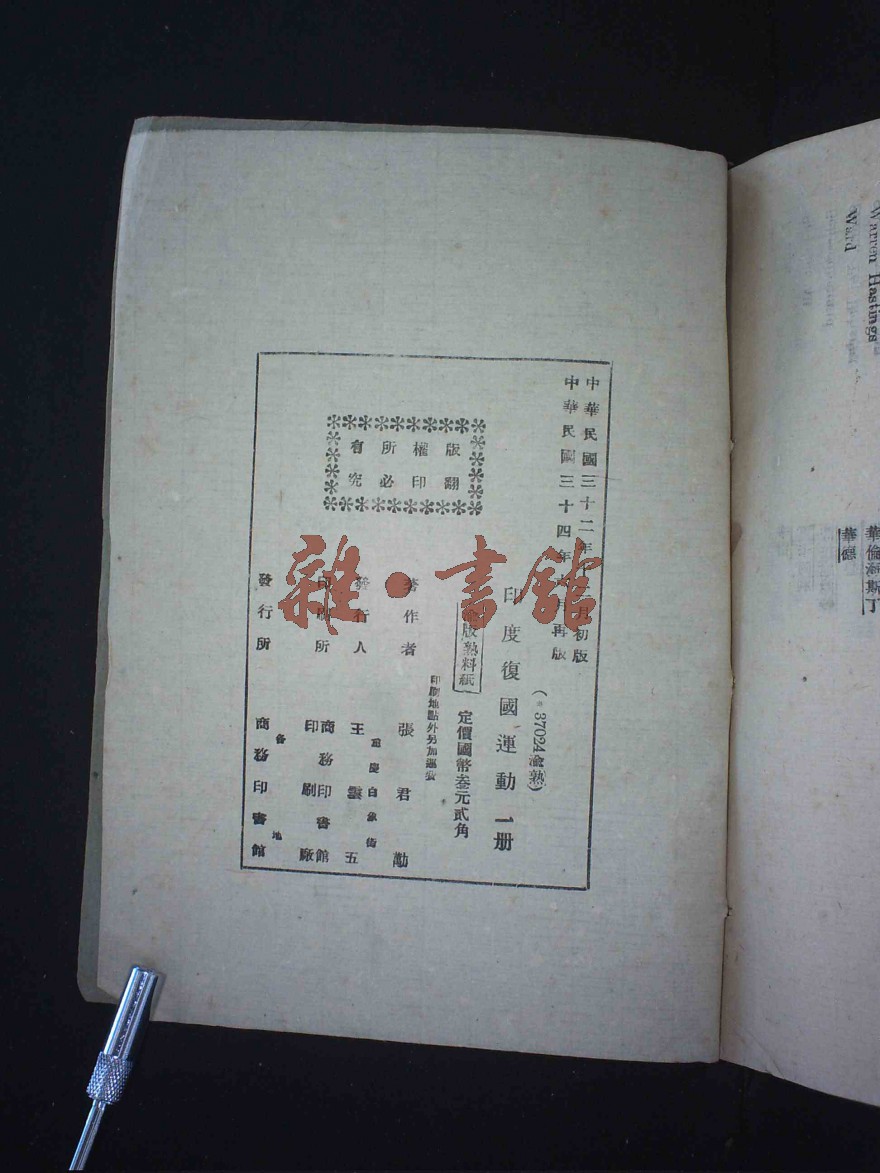 中華民國三十二年十二月初版
中華民國三十四年六月再版
(37024渝熟)
印度復國運動 一册
渝版熟料紙
定價國幣叁元貳角
印刷地點外另加運費
著作者 張君勱
發行人 王雲五
重慶白象街
印刷所 商務印書館印刷廠
發行所 商務印書館
各地
版權所有
翻印必究
雜·書館
Warren Hastings
華倫海斯丁
Ward
華德